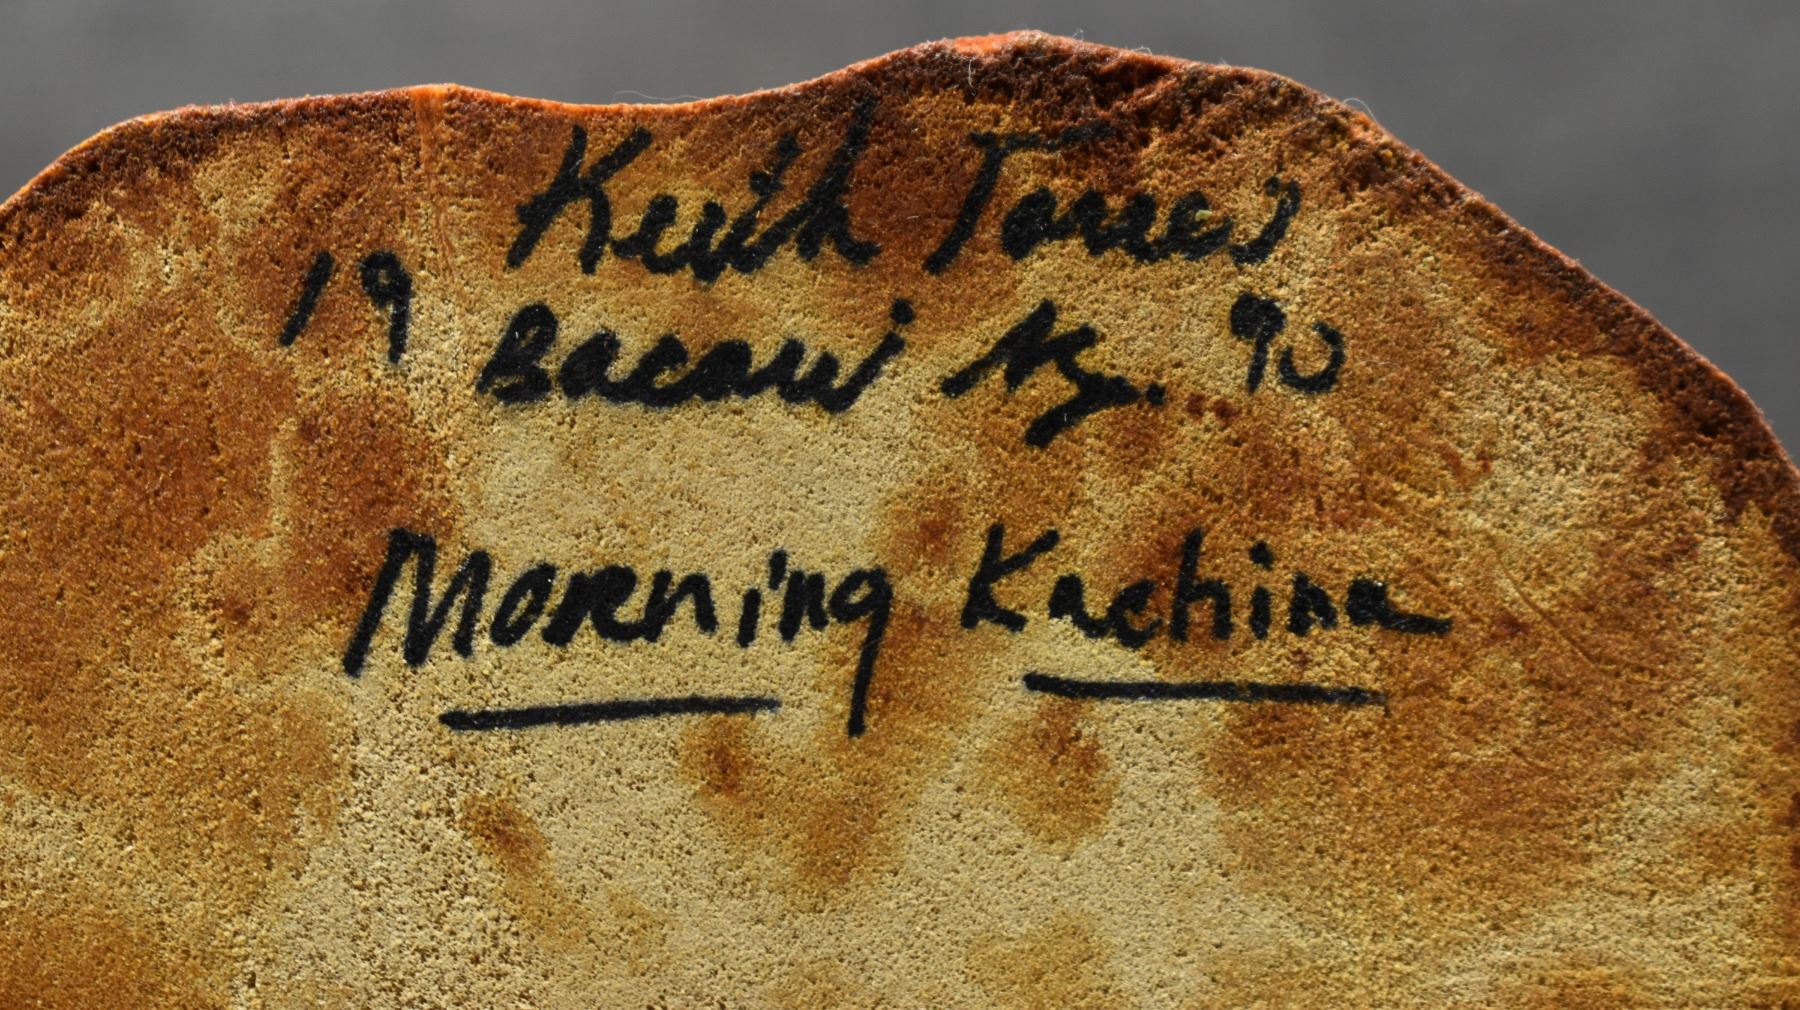 Keith Torres
19 Bacavi Az. 90
Morning Kachina